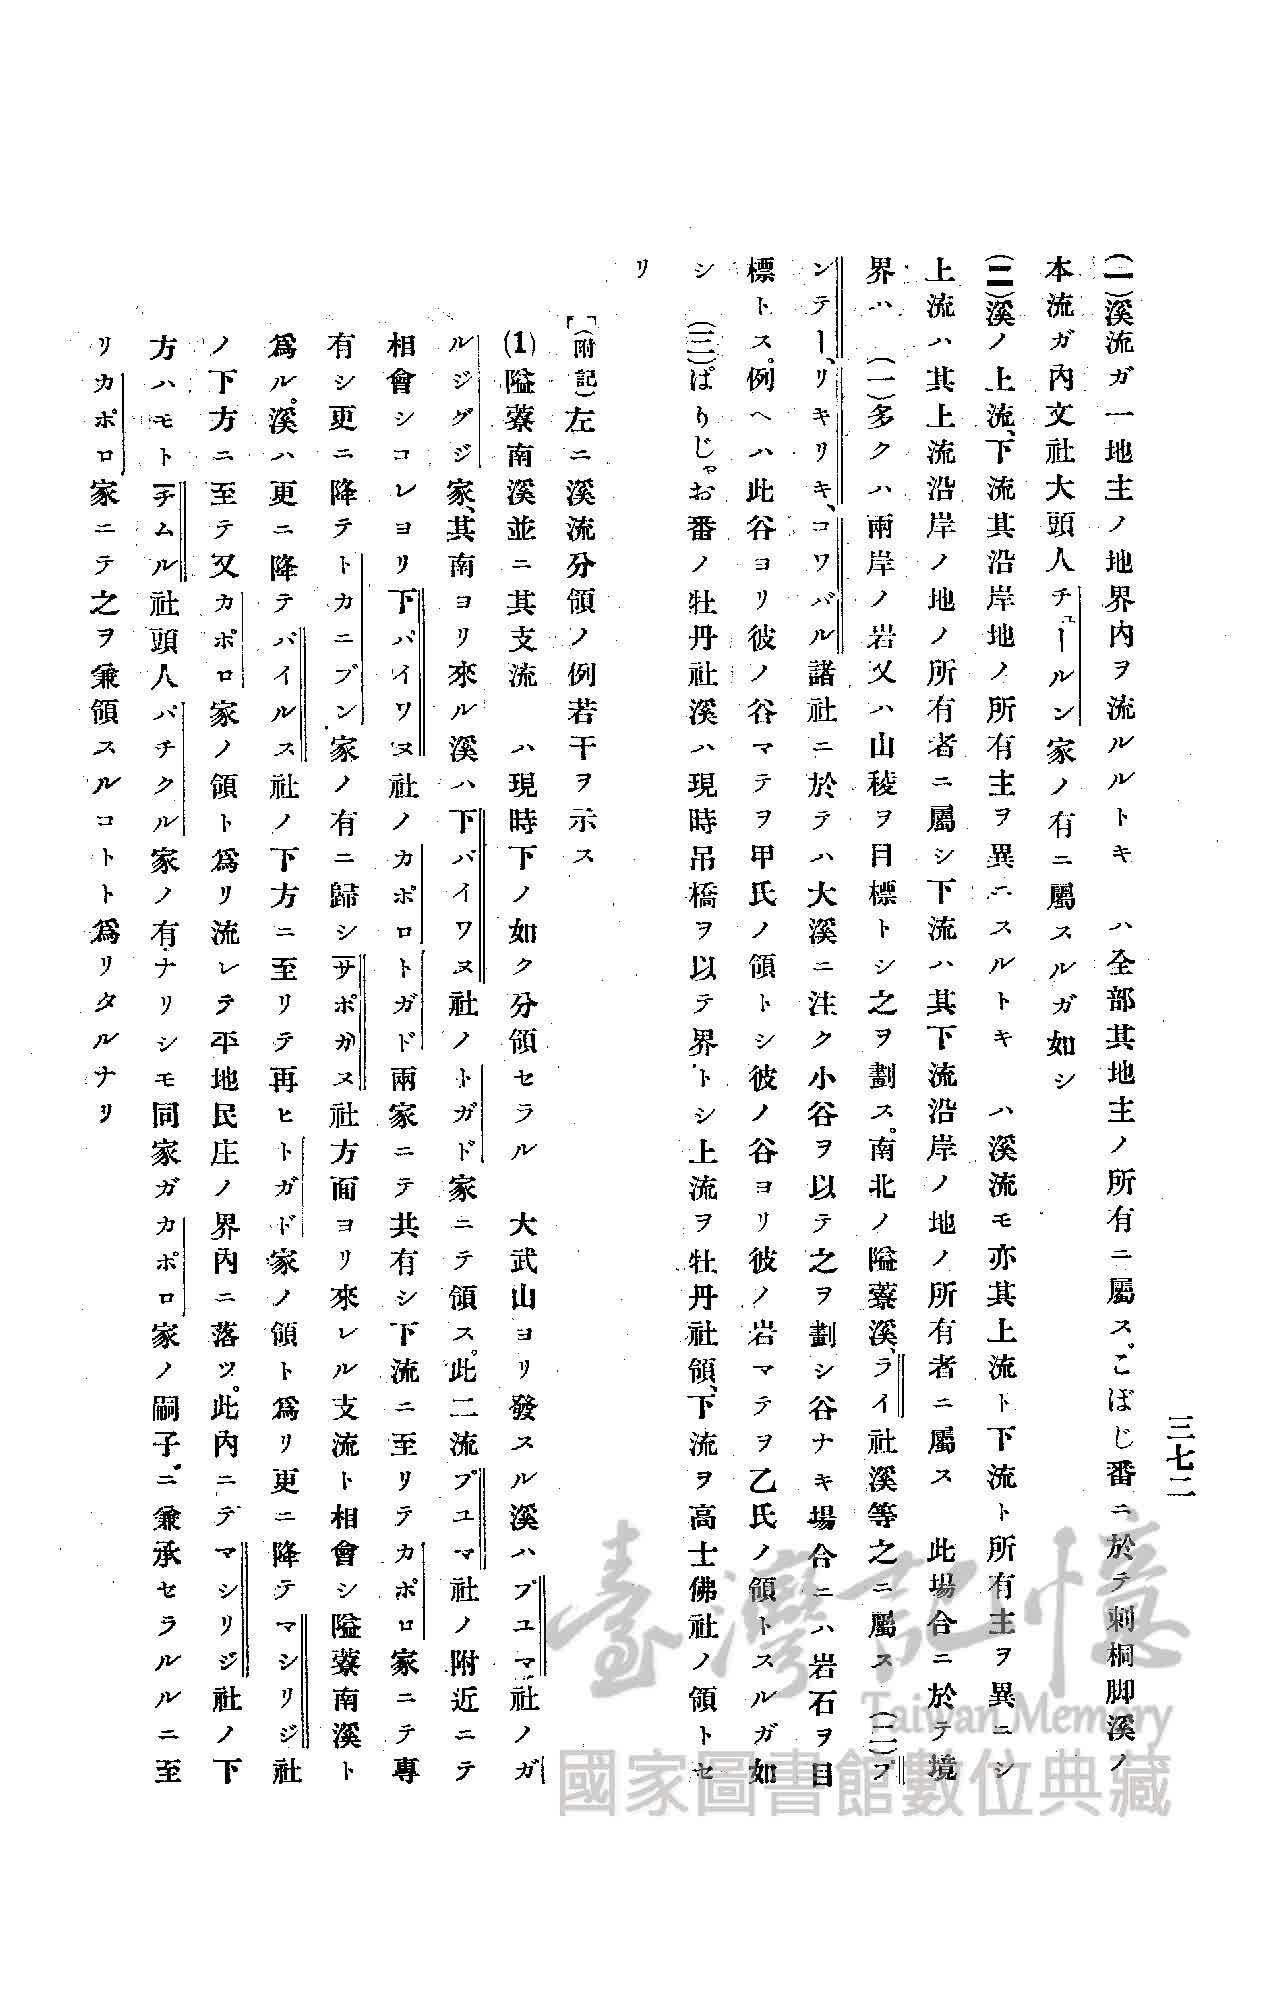 三七二
(一)溪流ガ一地主ノ地界内ヲ流ルルトキ ハ全部其地主ノ所有ニ屬ス。こぼじ番ニ於テ刺桐脚溪ノ
本流ガ内文社大頭人チュールン家ノ有ニ屬スルガ如シ
(二)溪ノ上流、下流其沿岸地ノ所有主ヲ異ニスルトキ ハ溪流モ亦其上流ト下流ト所有主ヲ異ニシ
上流ハ其上流沿岸ノ地ノ所有者ニ屬シ下流ハ其下流沿岸ノ地ノ所有者ニ屬ス 此場合ニ於テ境
界ハ (一)多クハ兩岸ノ岩又ハ山稜ヲ目標トシ之ヲ劃ス。南北ノ隘藔溪、ライ社溪等之ニ屬ス (二)プ
ンテー、リキリキ、コワバル諸社ニ於テハ大溪ニ注ク小谷ヲ以テ之ヲ劃シ谷ナキ場合ニハ岩石ヲ目
標トス。例ヘハ此谷ヨリ彼ノ谷マテヲ甲氏ノ領トシ彼ノ谷ヨリ彼ノ岩マテヲ乙氏ノ領トスルガ如
シ (三)ぱりじゃお番ノ牡丹社溪ハ現時吊橋ヲ以テ界トシ上流ヲ牡丹社領、下流ヲ高士佛社ノ領トセ
リ
[(附記)左ニ溪流分領ノ例若干ヲ示ス
(1)隘藔南溪並ニ其支流 ハ現時下ノ如ク分領セラル 大武山ヨリ發スル溪ハプユマ社ノガ
ルジグジ家、其南ヨリ來ル溪ハ下パイワヌ社ノトガド家ニテ領ス。此二流プユマ社ノ附近ニテ
相會シコレヨリ下パイワヌ社ノカポロトガド兩家ニテ共有シ下流ニ至リテカポロ家ニテ專
有シ更ニ降テトカニブン家ノ有ニ歸シサポガヌ社方面ヨリ來レル支流ト相會シ隘藔南溪ト
爲ル。溪ハ更ニ降テパイルス社ノ下方ニ至リテ再ヒトガド家ノ領ト爲リ更ニ降テマシリジ社
ノ下方ニ至テ又カポロ家ノ領ト爲リ流レテ平地民庄ノ界内ニ落ツ。此内ニテマシリジ社ノ下
方ハモトチムル社頭人パチクル家ノ有ナリシモ同家ガカポロ家ノ嗣子ニ兼承セラルルニ至
リカポロ家ニテ之ヲ兼領スルコトト爲リタルナリ
臺灣記憶
Taiwan Memory
國家圖書館數位典藏